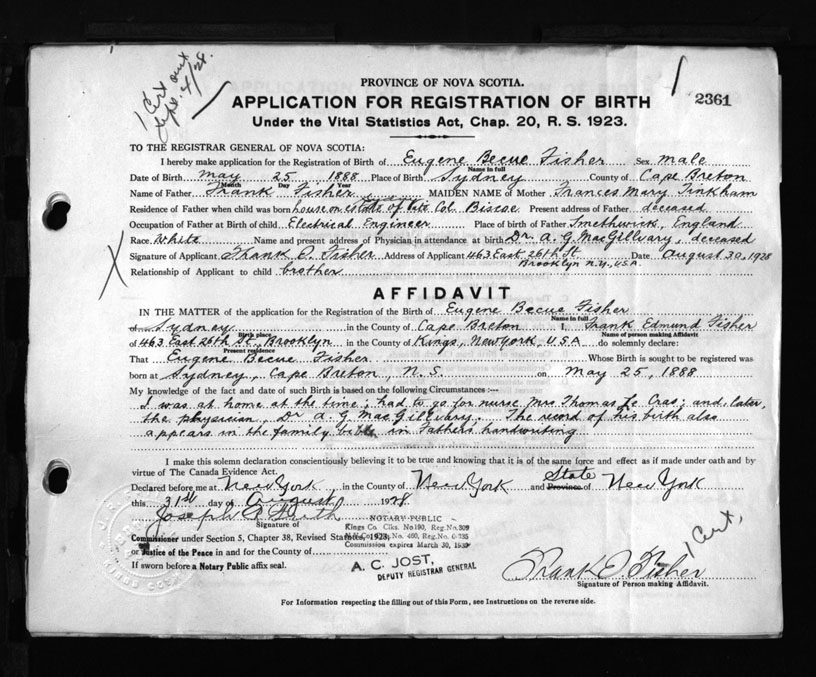 1 Cert out
Sept. 4/28.
PROVINCE OF NOVA SCOTIA.
2361
APPLICATION FOR REGISTRATION OF BIRTH
Under the Vital Statistics Act, Chap. 20, R. S. 1923.
TO THE REGISTRAR GENERAL OF NOVA SCOTIA:
I hereby make application for the Registration of Birth of Eugene Becue Fisher Sex male
Name in full
Date of Birth May 25 1888 Place of Birth Sydney County of Cape Breton
Month Day Year
Name of Father Frank Fisher MAIDEN NAME of Mother Frances Mary Tinkham
Residence of Father when child was born house on estate of Col. Biscoe Present address of Father deceased
Occupation of Father at Birth of child Electrical Engineer Place of birth of Father Smethwick, England
Race White Name and present address of Physician in attendance at birth Dr. A. G. MacGillvary, deceased
Signature of Applicant Frank E. Fisher Address of Applicant 463 East 26th St. Brooklyn N.Y., U.S.A. Date August 30, 1928
Relationship of Applicant to child brother
AFFIDAVIT
IN THE MATTER of the application for the Registration of the Birth of Eugene Becue Fisher
Name in full
of Sydney in the County of Cape Breton I, Frank Edmund Fisher
Birth place Name of person making Affidavit
of 463 East 26th St. Brooklyn in the County of Kings, New York, U.S.A. do solemnly declare:
Present residence
That Eugene Becue Fisher Whose Birth is sought to be registered was
born at Sydney, Cape Breton, N. S. on May 25, 1888
My knowledge of the fact and date of such Birth is based on the following Circumstances :—
I was at home at the time; had to go for nurse, Mrs Thomas Le Cras; and later,
the physician, Dr A. G. MacGillvary. The record of his birth also
appears in the family bible in Father's handwriting
I make this solemn declaration conscientiously believing it to be true and knowing that it is of the same force and effect as if made under oath and by
virtue of The Canada Evidence Act.
Declared before me at New York in the County of New York and State Province of New York
this 31st day of August 1928.
Joseph R. Smith
Signature of
NOTARY PUBLIC
Kings Co. Clks. No 190, Reg. No. 309
Commissioner under Section 5, Chapter 38, Revised Statutes, 1923;
Co. No. 460, Reg. No.
Commission expires March 30, 1930
or Justice of the Peace in and for the County of
If sworn before a Notary Public affix seal.
A. C. JOST,
DEPUTY REGISTRAR GENERAL
1 Cert.
Frank E Fisher
Signature of Person making Affidavit.
For Information respecting the filling out of this Form, see Instructions on the reverse side.